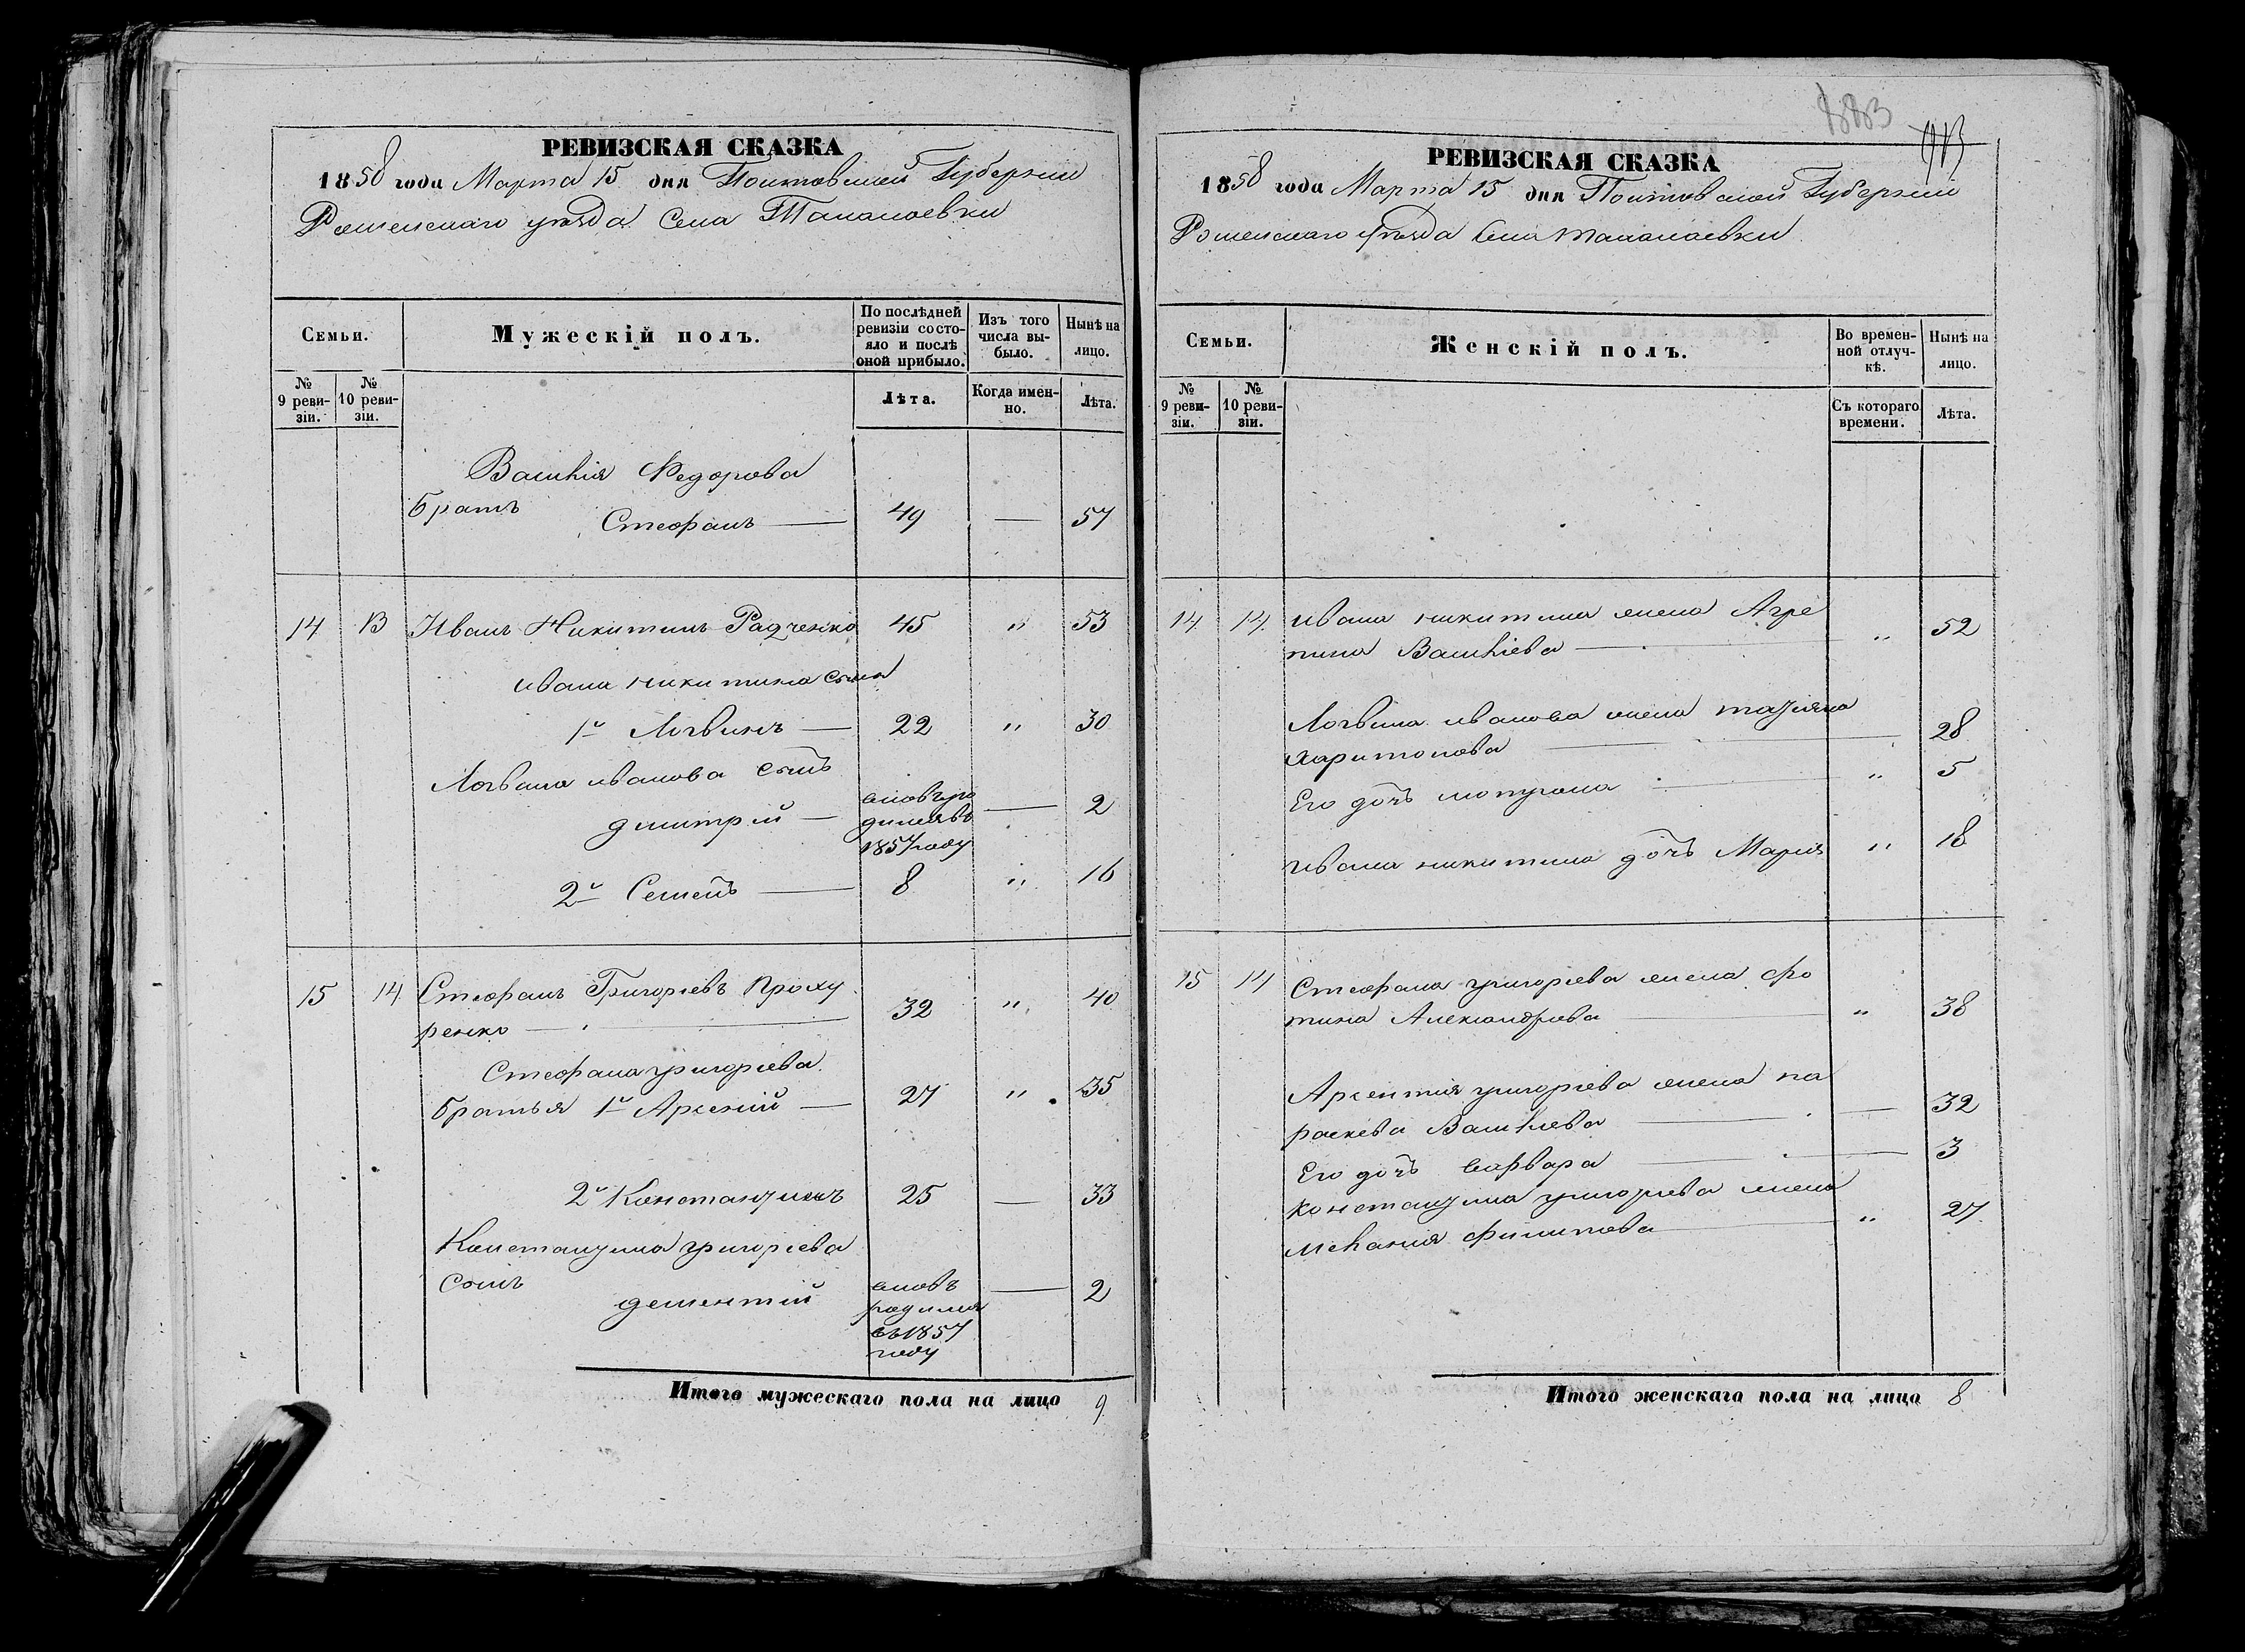 РЕВИЗСКАЯ СКАЗКА
1858 года Марта 15 дня Полтавской Губерніи
Роменскаго уѣзда Села Талалаевки
Семьи.
Мужескій полъ.
По послѣдней ревизіи состояло и послѣ оной прибыло.
Изъ того числа выбыло.
Нынѣ на лицо.
№ 9 ревизіи.
№ 10 ревизіи.
Лѣта.
Когда именно.
Лѣта.
Василія Федорова
братъ
Стефанъ — 49 — 57
14 13 Иванъ Никитинъ Радченко 45 " 53
Ивана Никитина сына
1й Логвинъ — 22 " 30
Логвина Иванова сынъ
Димитрій — вновь ро — 2
дился въ
1857 году
2й Семенъ — 8 " 16
15 14 Стефанъ Григорьевъ Проху
ренко — 32 " 40
Стефана Григорьева
братья 1й Арсеній — 27 " 35
2й Константинъ 25 — 33
Константина Григорьева
сынъ
Дементій вновь — 2
родился
въ 1857
году
Итого мужескаго пола на лицо 9
883
РЕВИЗСКАЯ СКАЗКА
1858 года Марта 15 дня Полтавской Губерніи
Роменскаго уѣзда Села Талалаевки
Семьи.
Женскій полъ.
Во временной отлучкѣ.
Нынѣ на лицо.
№ 9 ревизіи.
№ 10 ревизіи.
Съ котораго времени.
Лѣта.
14 14 Ивана Никитина жена Агре
пина Васильева — " 52
Логвина Иванова жена Татіяна
Харитонова — 28
Его дочь — " 5
Ивана Никитина дочь Марія " 18
15 14 Стефана Григорьева жена Фо
тина Александрова — " 38
Арсентія Григорьева жена Па
раскева Васильева — 32
Его дочь Варвара — 3
Константина Григорьева жена
Меланія Филипова — " 27
Итого женскаго пола на лицо 8